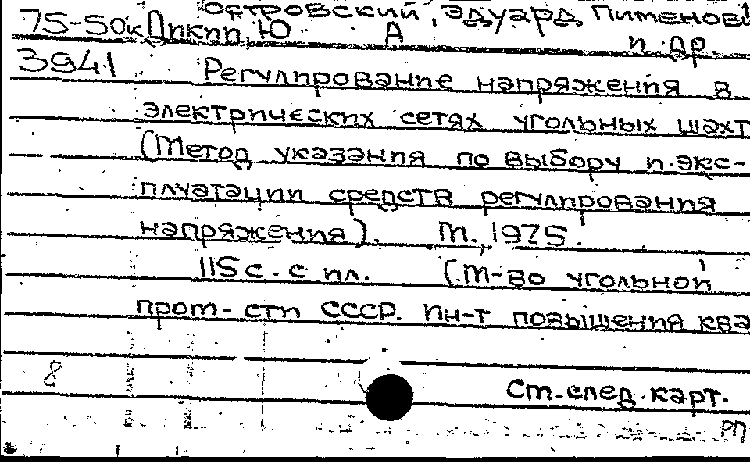 Островский, Эдуард Пименов
75-50к Ю А и др.
3941 Регулирование напряжения в
электрических сетях угольных шахт
(Метод указания по выбору и экс-
плуатации средств регулирования
напряжения). М., 1975.
115 с. с ил. (М-во угольной
пром-сти СССР. Ин-т повышения ква
8 См. след. карт.
РП